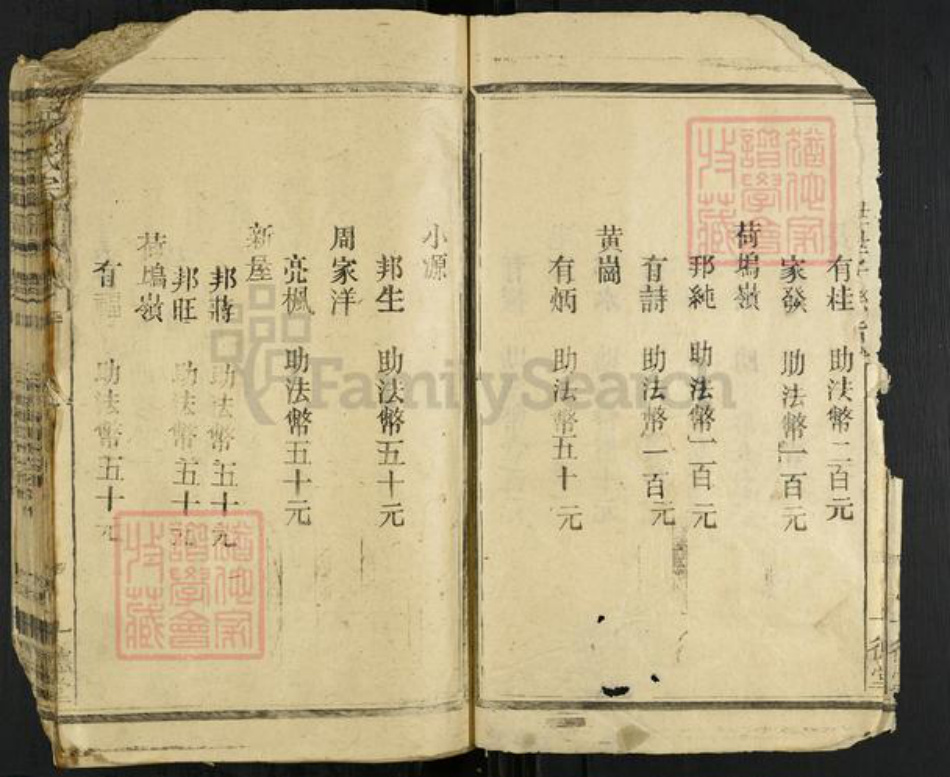 有桂　助法幣二百元
家發　助法幣一百元
荷塢嶺
邦純　助法幣一百元
有詩　助法幣一百元
黄崗
有炳　助法幣五十元
小源
邦生　助法幣五十元
周家洋
亮楓　助法幣五十元
新屋
邦蔣　助法幣五十元
邦旺　助法幣五十元
荷塢嶺
有福　助法幣五十元
譜學會
收藏
譜學會
收藏
FamilySearch